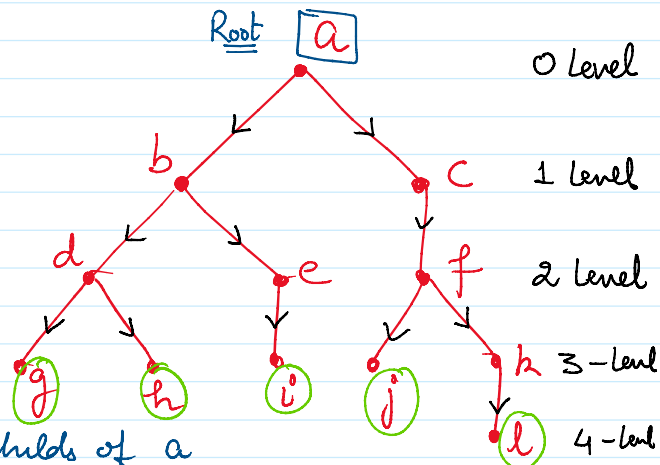 Root a
0 Level
b c 1 Level
d e f 2 Level
g h i j k 3-Level
l 4-Level
hilds of a